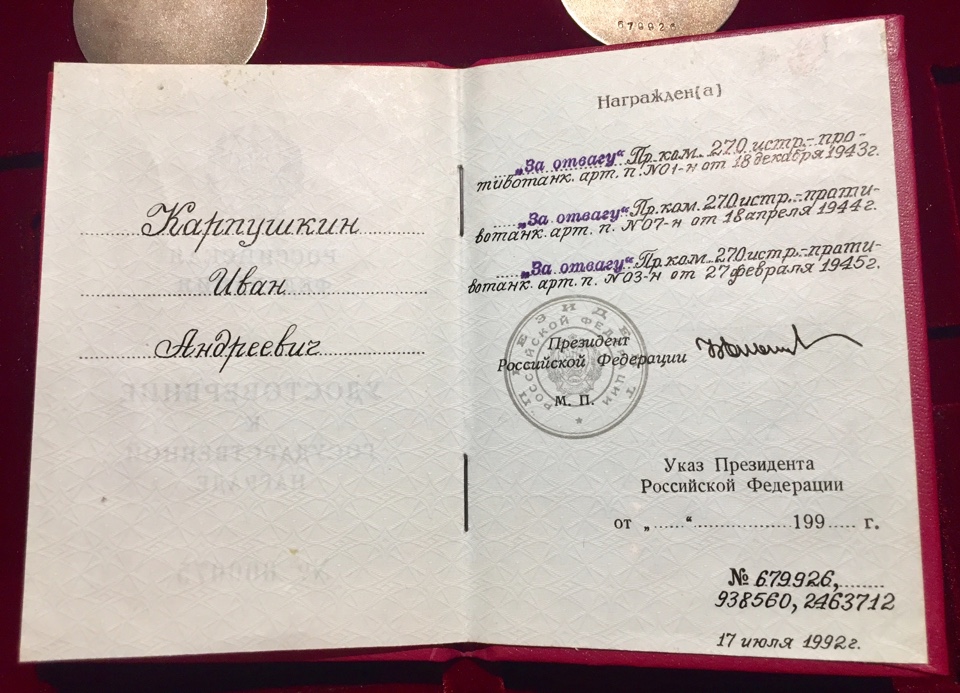 679926
Карпушкин
Иван
Андреевич
Награжден(а)
„За отвагу“ Пр. ком. 270 истр.-про-
тивотанк. арт. п. №01-н от 18 декабря 1943г.
„За отвагу“ Пр. ком. 270 истр.-проти-
вотанк. арт. п. №07-н от 18 апреля 1944г.
„За отвагу“ Пр. ком. 270 истр.-проти-
вотанк. арт. п. №03-н от 27 февраля 1945г.
ПРЕЗИДЕНТ
РОССИЙСКОЙ ФЕДЕРАЦИИ
Президент
Российской Федерации
М. П.
Указ Президента
Российской Федерации
от „......“ .................. 199..... г.
№ 679926,........
938560, 2463712
17 июля 1992г.
РОССИЙСКАЯ
УДОСТОВЕРЕНИЕ
К
ГОСУДАРСТВЕННОЙ
НАГРАДЕ